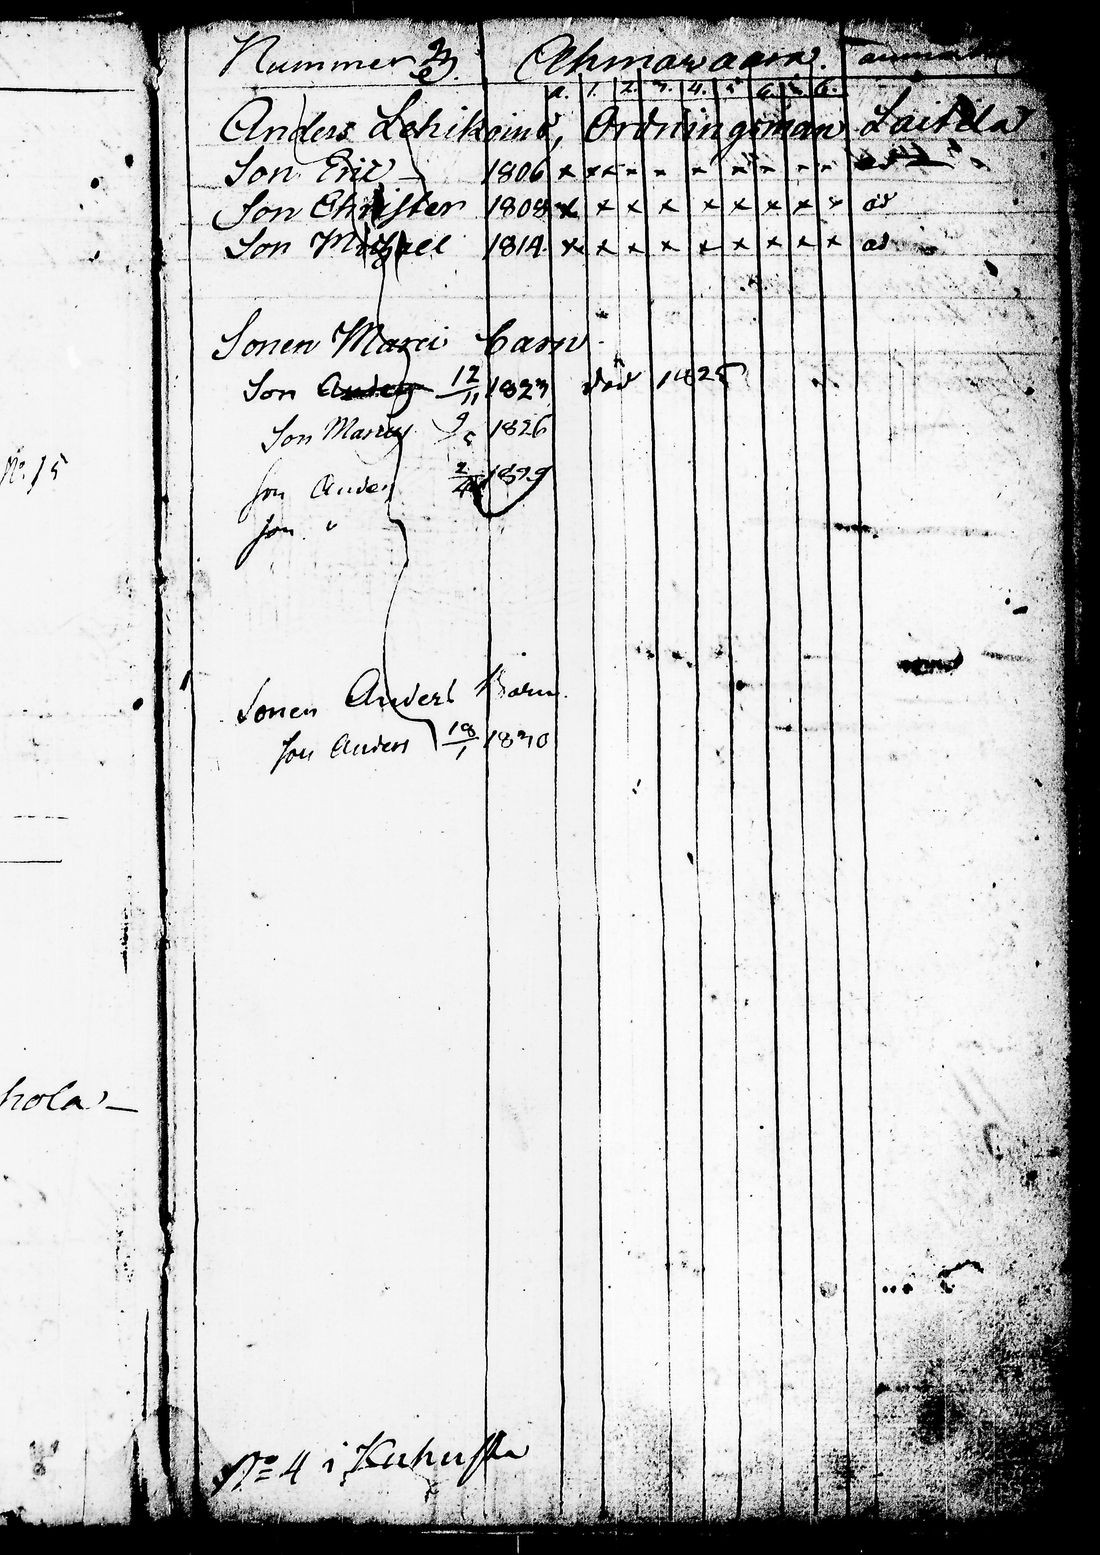 Nummer 23. Ahmawaara.
a. 1. 2. 3. 4. 5. 6.
Anders Lehikoind, Ordningsman Laitila
Son Eric 1806 x x x x x x x x x x
Son Christer 1808 x x x x x x x x x
Son Michael 1814 x x x x x x x x x
Sonen Marci barn.
Son Anders 12/11 1823 död 1825
Son Marcus 9/5 1826
Son Anders 2/4 1829
Son "
N:o 15
Sonen Anders Barn.
Son Anders 18/1 1830
hola
N:o 4 i Kuhusta